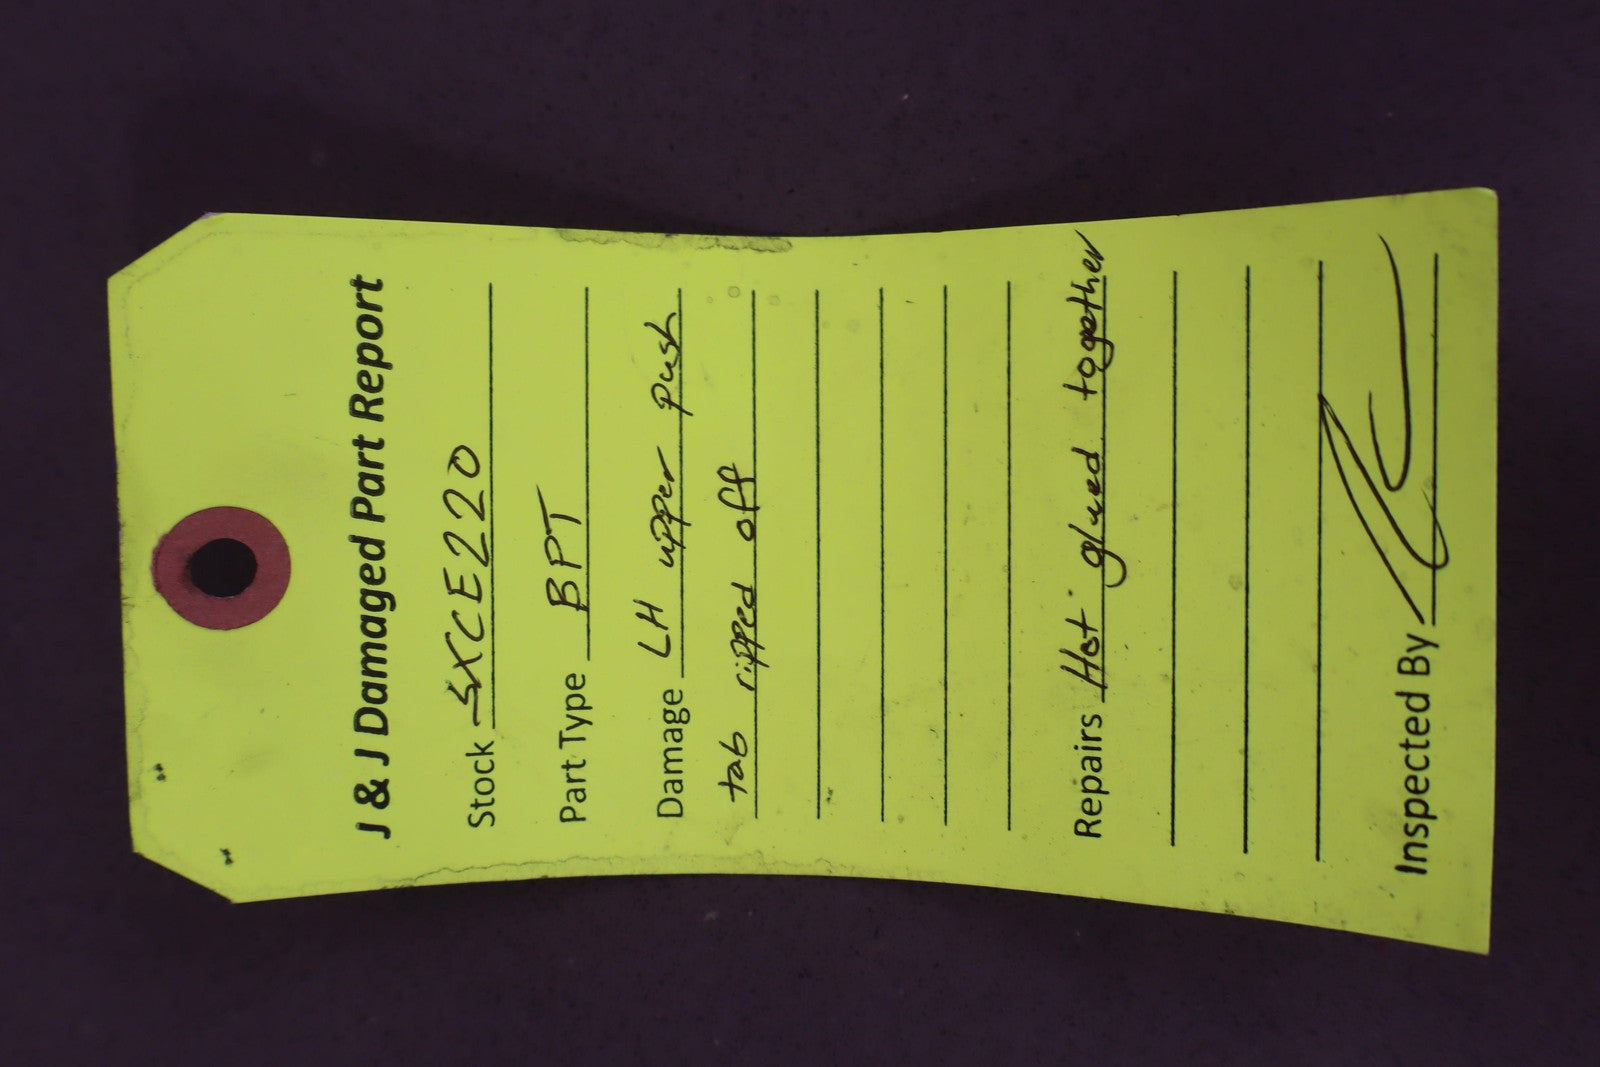 J & J Damaged Part Report
Stock SXCE220
Part Type BPT
Damage LH upper push
tab ripped off
Repairs Hot glued together
Inspected By